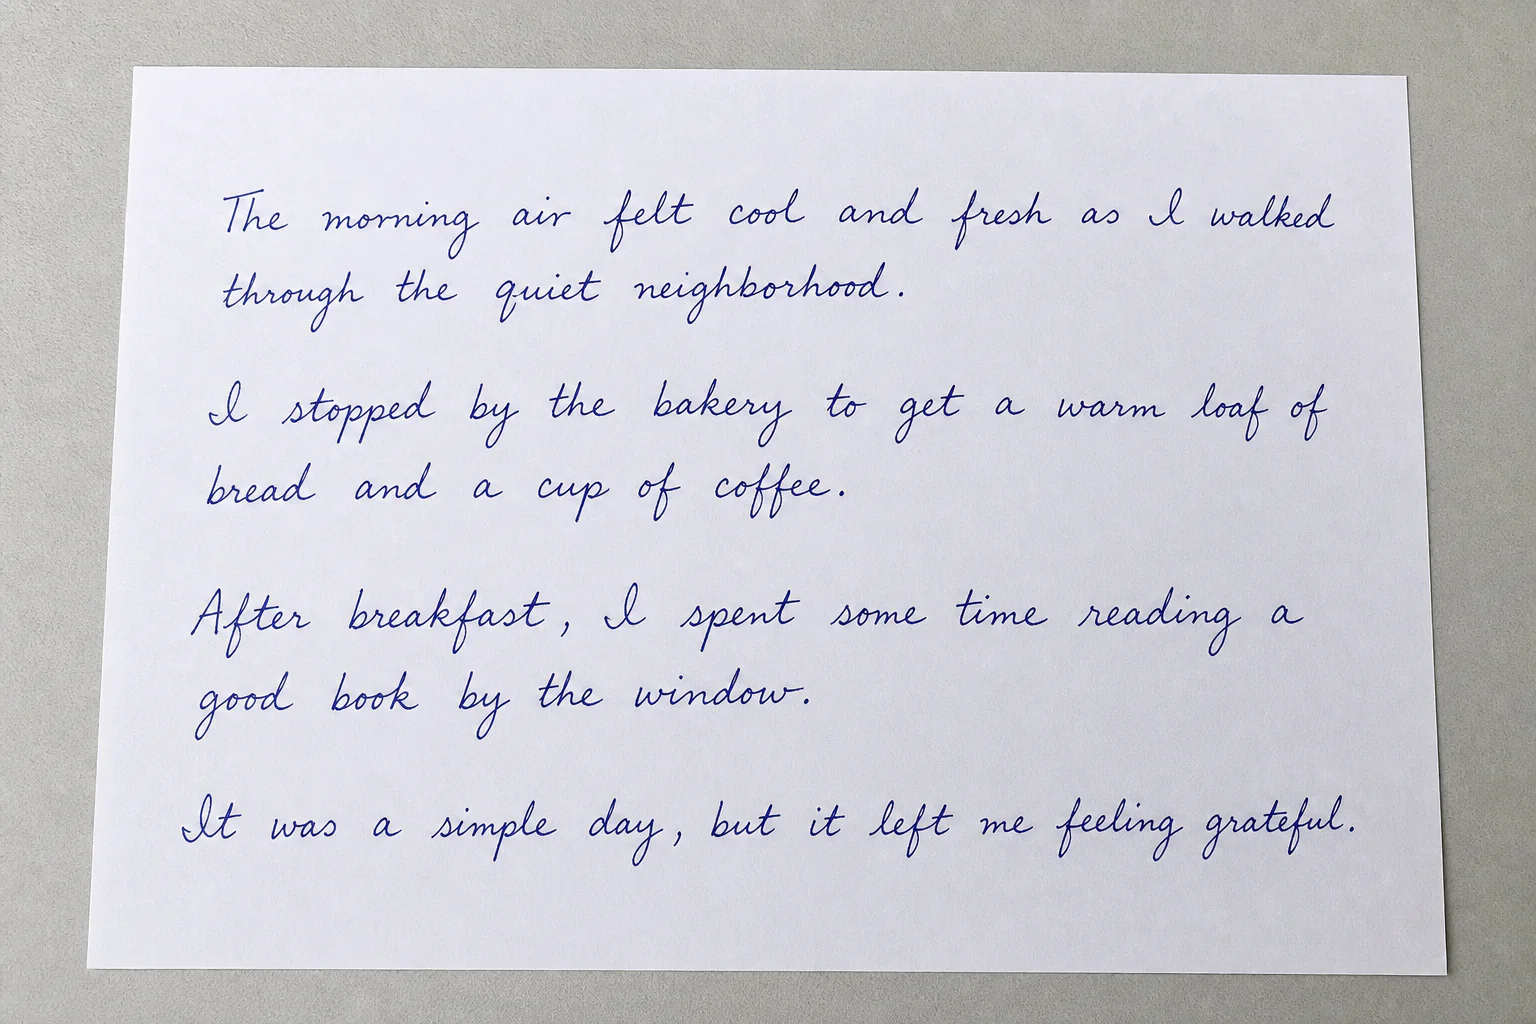 The morning air felt cool and fresh as I walked
through the quiet neighborhood.
I stopped by the bakery to get a warm loaf of
bread and a cup of coffee.
After breakfast, I spent some time reading a
good book by the window.
It was a simple day, but it left me feeling grateful.